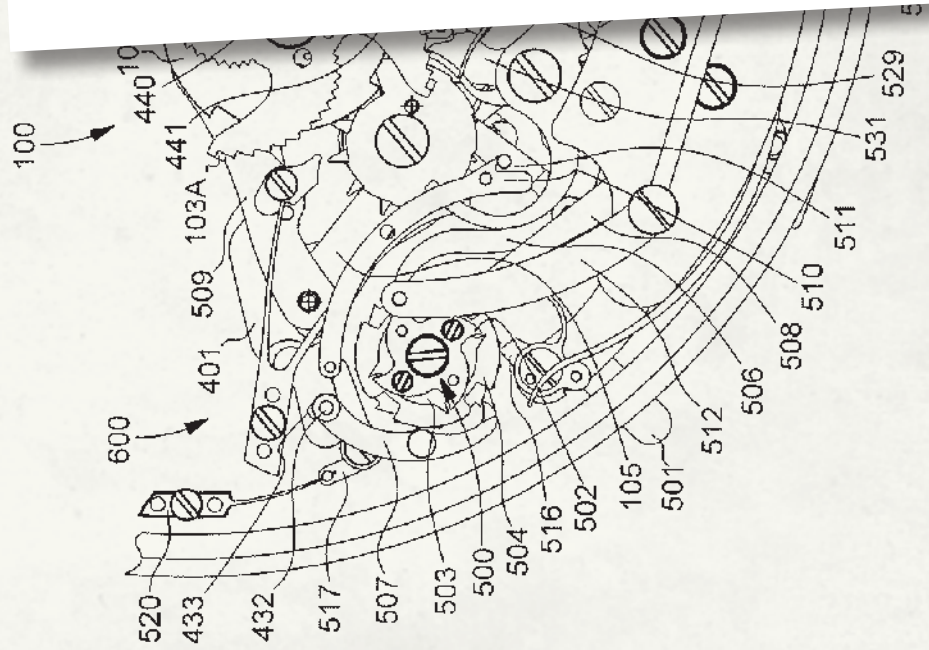 100
440
441
103A
509
401
600
520
433
432
517
507
503
500
504
516
502
105
501
512
506
508
510
511
531
529